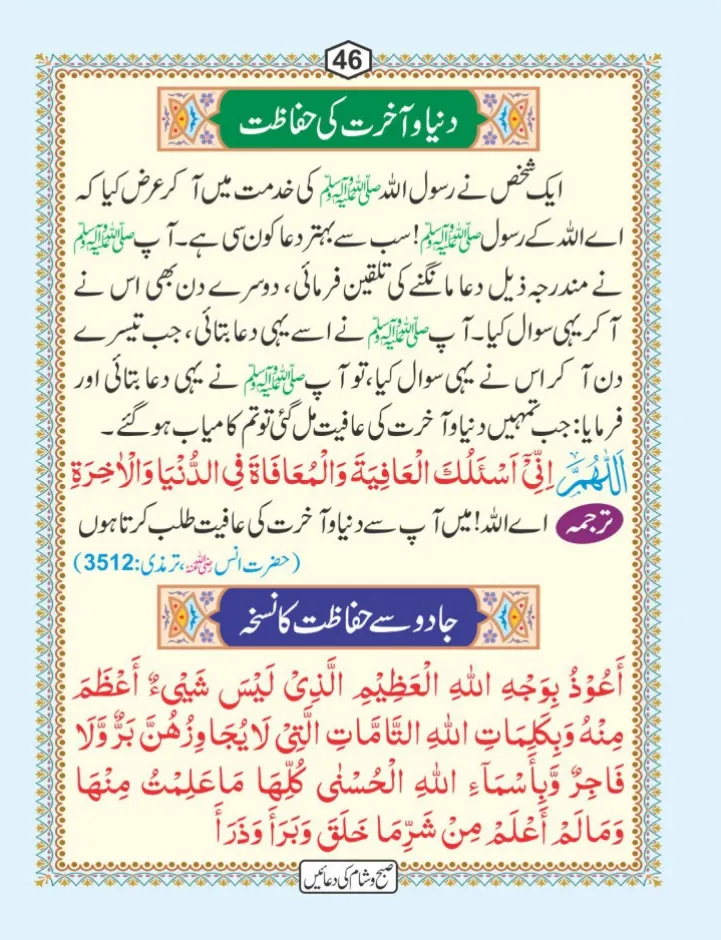 46
دنیا و آخرت کی حفاظت
ایک شخص نے رسول اللہ ﷺ کی خدمت میں آ کر عرض کیا کہ
اے اللہ کے رسول ﷺ! سب سے بہتر دعا کون سی ہے۔ آپ ﷺ
نے مندرجہ ذیل دعا مانگنے کی تلقین فرمائی، دوسرے دن بھی اس نے
آ کر یہی سوال کیا۔ آپ ﷺ نے اسے یہی دعا بتائی، جب تیسرے
دن آ کر اس نے یہی سوال کیا، تو آپ ﷺ نے یہی دعا بتائی اور
فرمایا: جب تمہیں دنیا و آخرت کی عافیت مل گئی تو تم کامیاب ہو گئے۔
اَللّٰهُمَّ اِنِّیْٓ اَسْئَلُكَ الْعَافِیَةَ وَالْمُعَافَاةَ فِی الدُّنْیَا وَالْاٰخِرَةِ
ترجمہ اے اللہ! میں آپ سے دنیا و آخرت کی عافیت طلب کرتا ہوں
(حضرت انس رضی اللہ عنہ، ترمذی: 3512)
جادو سے حفاظت کا نسخہ
أَعُوْذُ بِوَجْهِ اللهِ الْعَظِیْمِ الَّذِیْ لَیْسَ شَیْیءٌ أَعْظَمَ
مِنْهُ وَبِكَلِمَاتِ اللهِ التَّامَّاتِ الَّتِیْ لَا یُجَاوِزُهُنَّ بَرٌّ وَّلَا
فَاجِرٌ وَّبِأَسْمَآءِ اللهِ الْحُسْنٰی كُلِّهَا مَا عَلِمْتُ مِنْهَا
وَمَا لَمْ أَعْلَمْ مِنْ شَرِّ مَا خَلَقَ وَبَرَأَ وَذَرَأَ
صبح و شام کی دعائیں